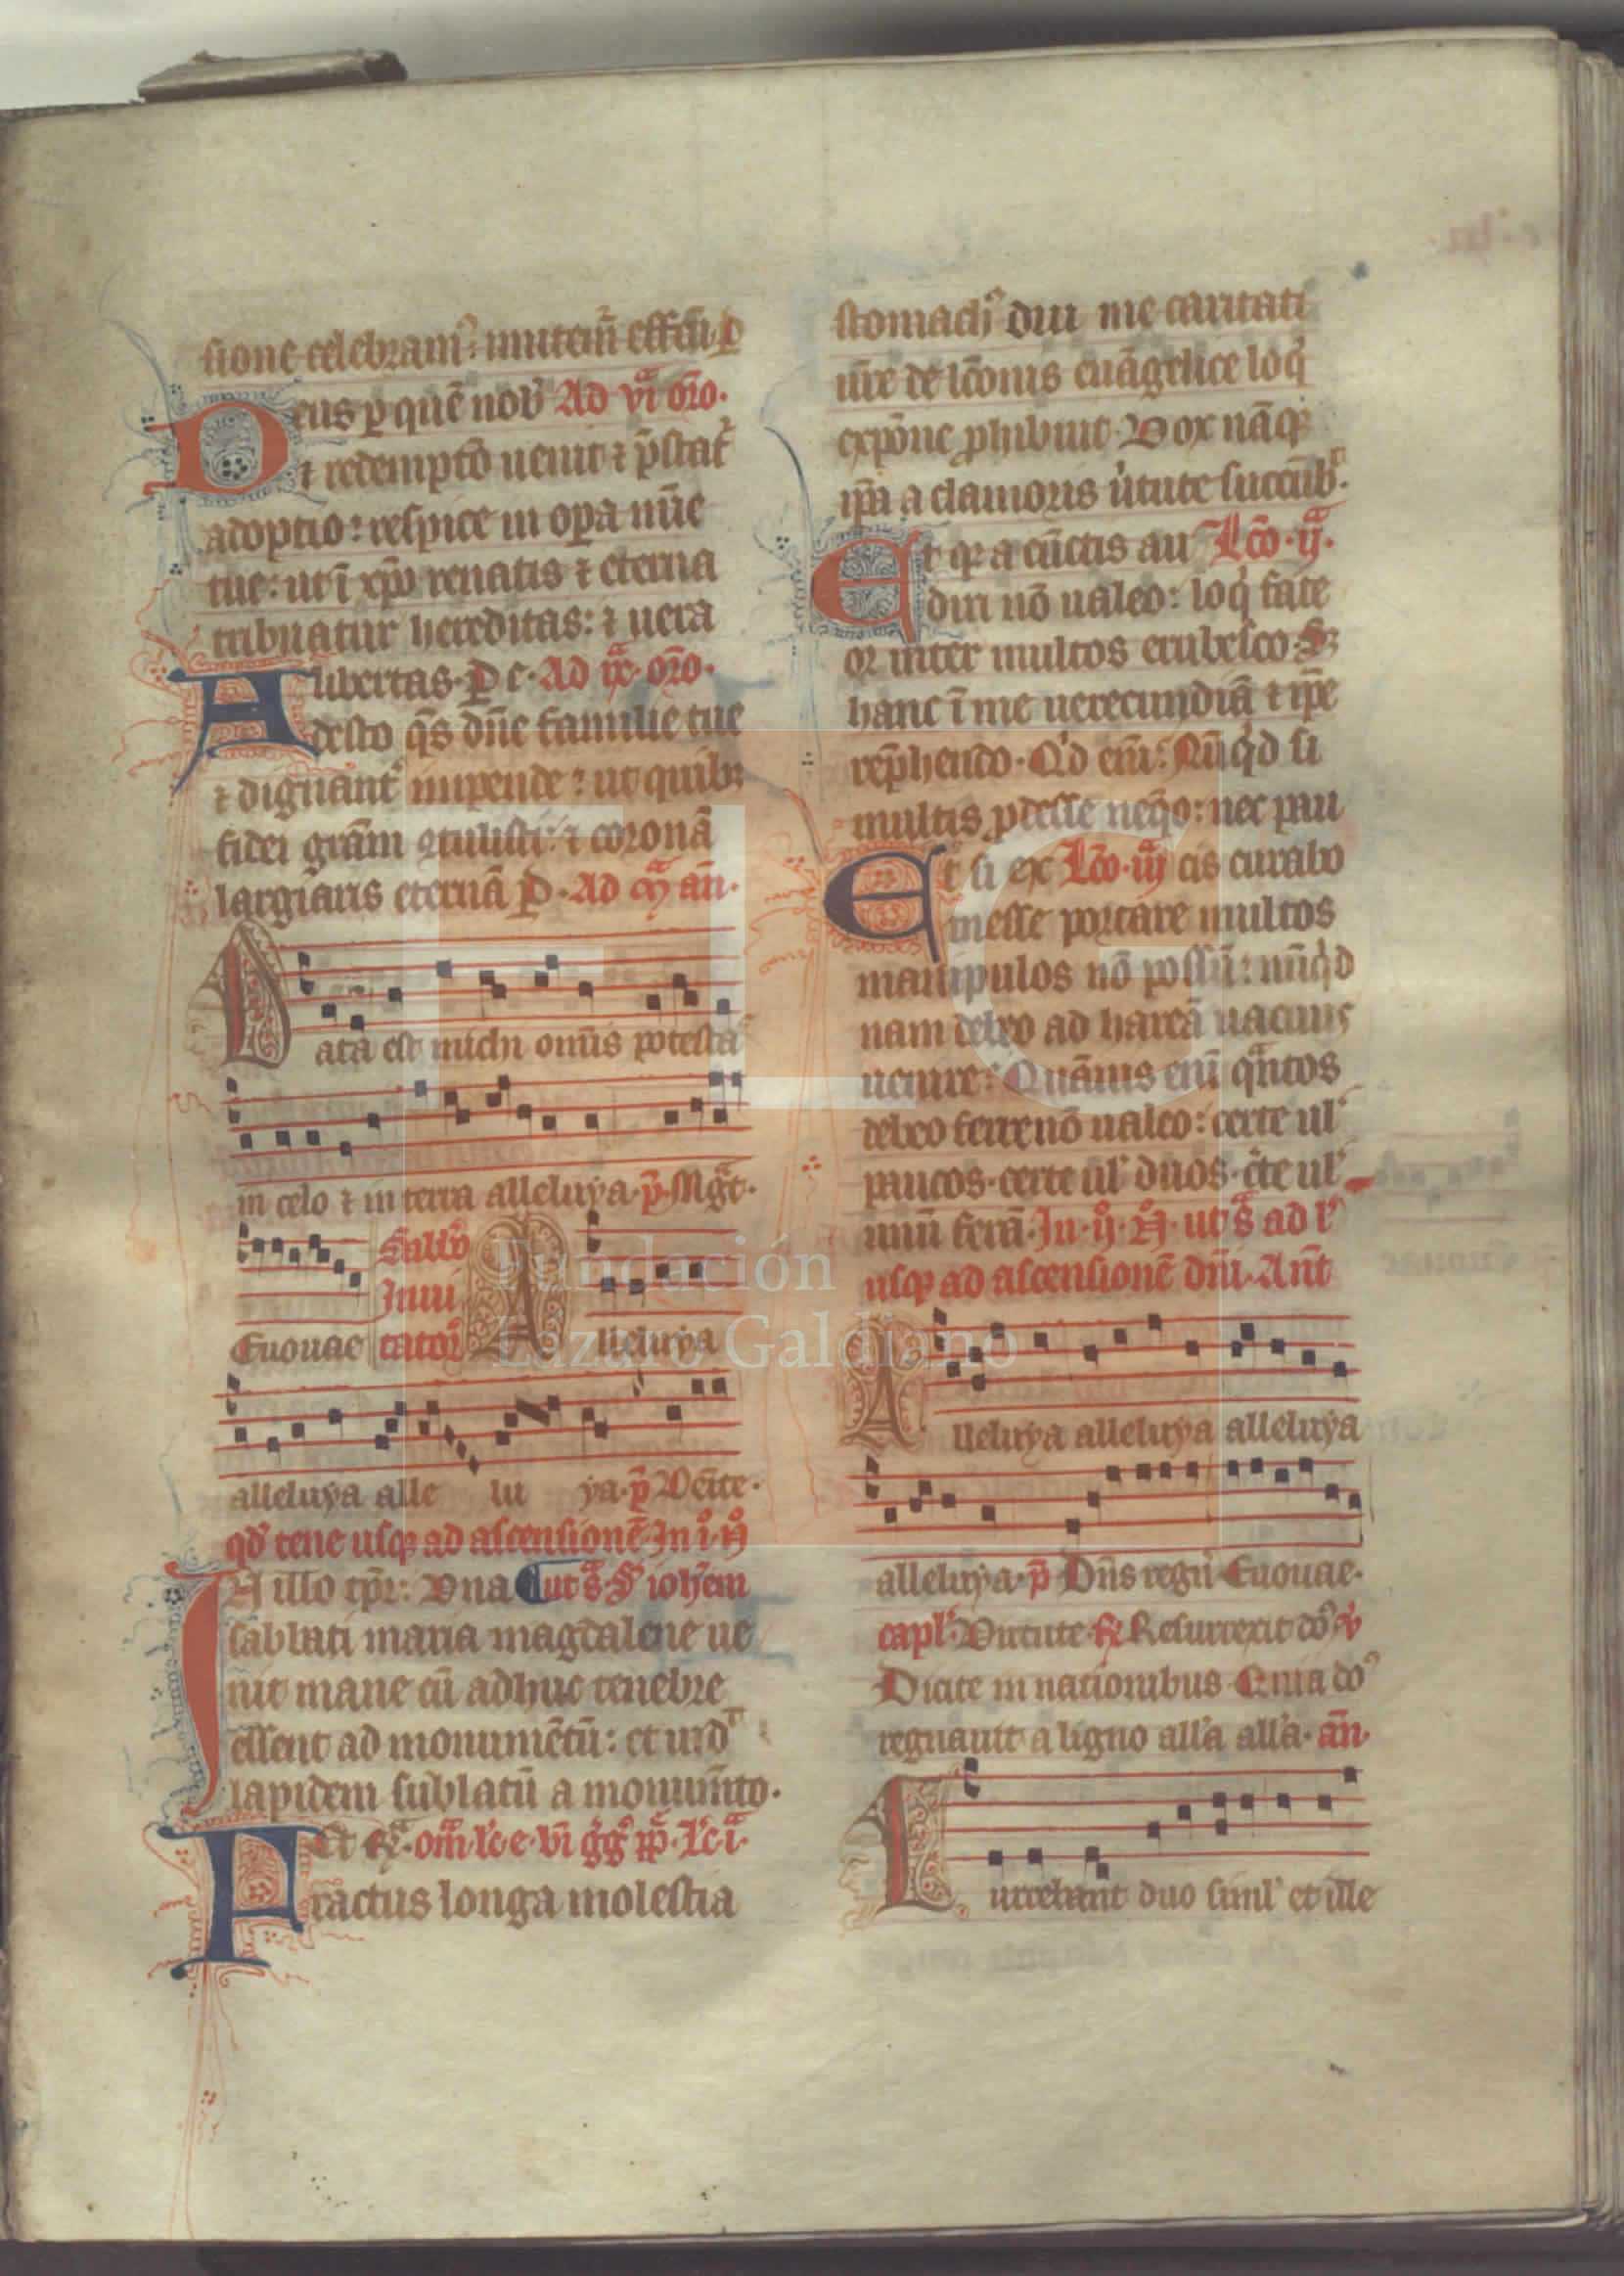 sione celebram⁹: mitem̄ effc̄u. P
eus ꝑ quē nob̾ Ad vi oro.
⁊ redemptō uenit ⁊ p̄stat᷑
adoptio: respice in opa mīe
tue: ut ī xp̄o renatis ⁊ eterna
tribuatur hereditas: ⁊ uera
libertas. P e. Ad ix. oro.
A desto q̄s dn̄e familie tue
⁊ dignant᷑ impende: ut quibꝫ
fidei grām ꝯtulisti: ⁊ coronā
largiaris eternā P. Ad an̄.
D ata est michi omīs potesta
in celo ⁊ in terra alleluya. p̄. Mgt.
Sabb̄o
Inui
Euouae tator̄ A lleluya
alleluya alle lu ya. p̄ Venite.
qd̾ tene usqꝫ ad ascensionē. In i. N̊
I N illo tp̄r: Vna ut s̄. iohem
sabbati maria magdalene ue
nit mane cū adhuc tenebre
essent ad monumētū: et uid
lapidem sublatū a monum̄to.
Et
F ractus longa molestia
stomach⁹ diu me caritati
ur̄e de lc̄onis euāgelice loq̾
exp̄one phibuit. Vox nāqꝫ
ip̄a a clamoris u̾tute succūb̾.
E t qꝛ a cūctis au Lc̄o. ij.
diri nō ualeo: loq̾ fate
or inter multos erubesco. Sꝫ
hanc ī me uerecundiā ⁊ ip̄e
rep̄hendo. Q̾d em̄: Nūq̾d si
multis ꝓdesse neq̾o: nec pau
E t si ex Lc̄o. iij cis curabo
messe portare multos
manipulos nō possū: nūq̾d
nam debeo ad hareā uacuus
uenire: Quāuis em̄ qntos
debeo ferre nō ualeo: certe ul᷑
paucos. certe ul᷑ duos. c̾te ul᷑
unū ferā. In. ij. N̊. ut s̄ ad l᷑
usqꝫ ad ascensionē dn̄i. Ant̄
A lleluya alleluya alleluya
alleluya. p̄ Dn̄s regū Euouae.
capl᷑. Virtute. ꝶ Resurrexit do⁹ ꝟ
Dicite in nationibus. Quia do⁹
regnauit a ligno all᷑a all᷑a. an̄.
C urrebant duo siml᷑ et ille
Fundación
Lázaro Galdiano
FLG